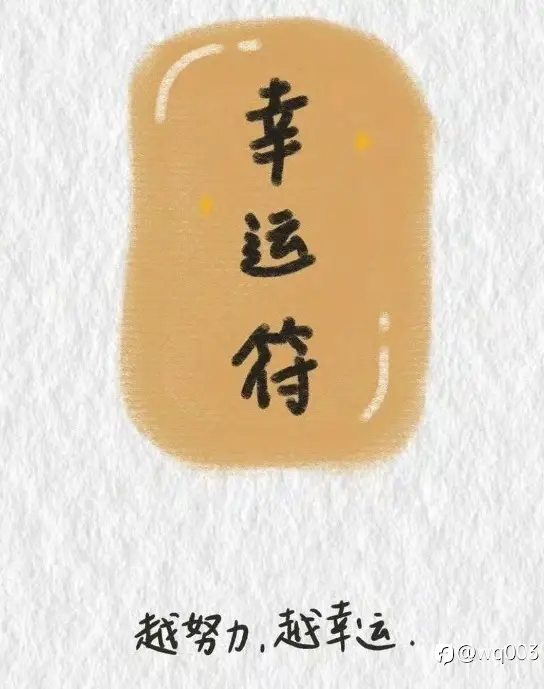 幸运符
越努力,越幸运.
@wq003